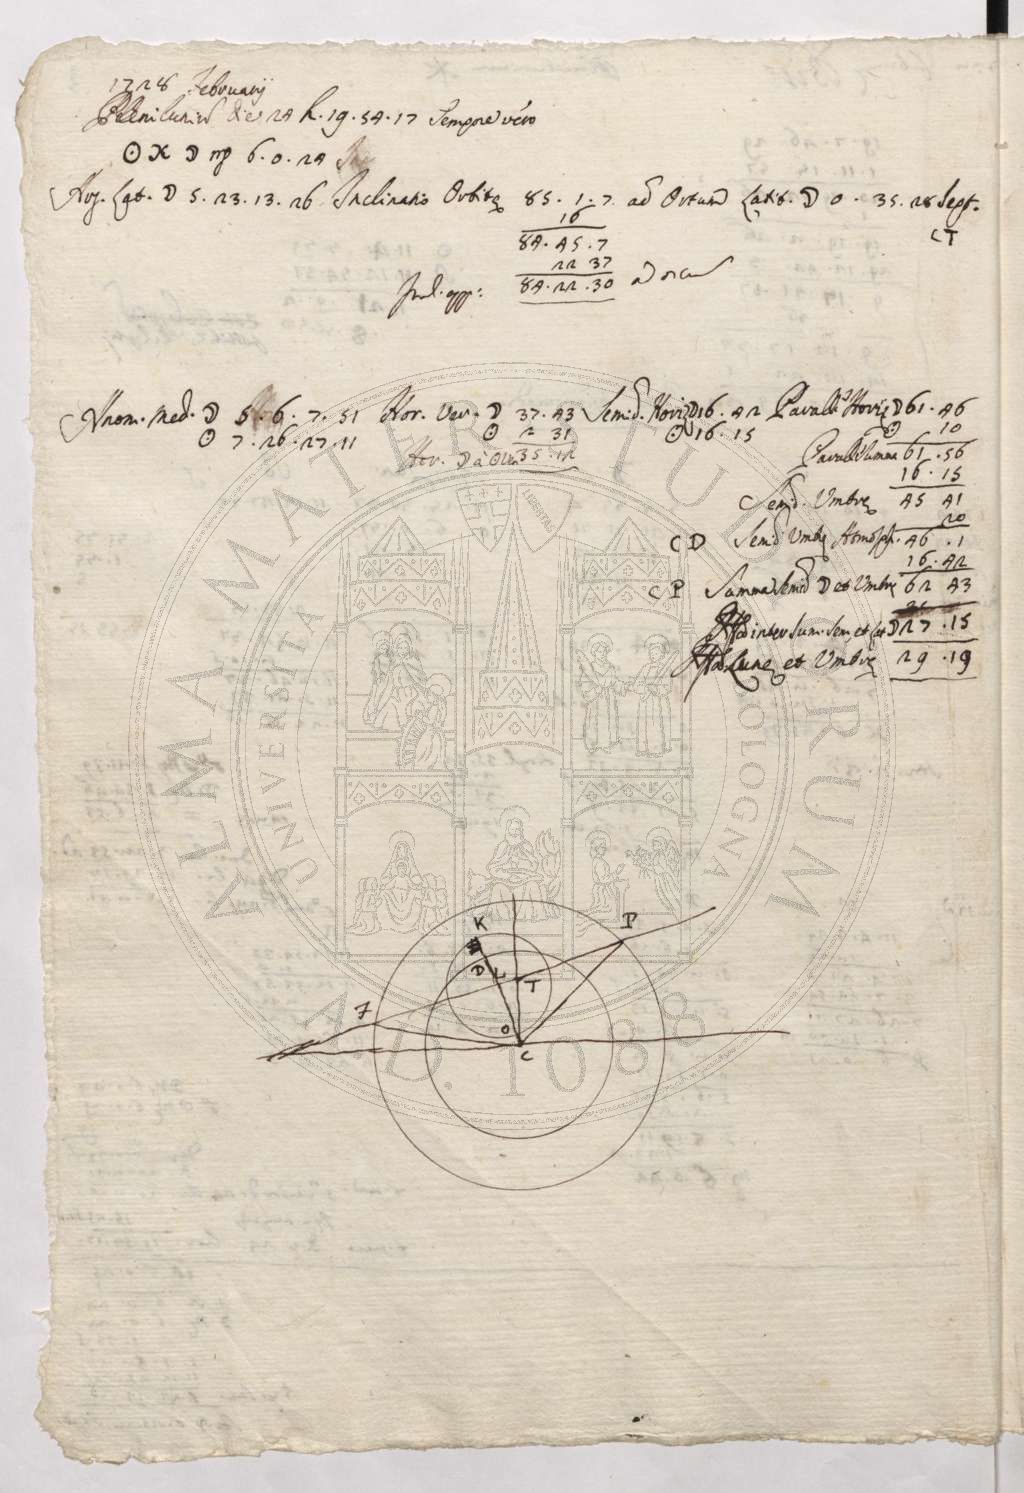 1728 Februarij
Plenilunium die 24 h. 19. 54. 17 tempore vero
☉ ♓ ☽ ♍ 6. 0. 24
Arg. Lat. ☽ 5. 23. 13. 26 Inclinatio Orbitę 85. 1. 7 ad Ortum Latit. ☽ 0. 35. 28 Sept.
16 CT
84. 45. 7
22 37
Incl. app: 84. 22. 30 ad occ
Anom. Med. ☽ 5. 6. 7. 51 Hor. Ver. ☽ 37. 43 Semid. Horiz ☽ 16. 42 Parall. Horiz ☽ 61. 46
☉ 7. 26. 27. 11 ☉ 2 31 ☉ 16. 15 ☉ 10
Hor. ☽ à Sole 35. 12 Parall. Summa 61. 56
16. 15
Semid. Umbrę 45 41
20
CD Semid Umbrę Atmosph. 46. 1
16. 42
CP Summa Semid ☽ et Umbrę 62 43
inter Sum. Sem. et Lat ☽ 27. 15
Lunę et Umbrę 29. 19
ALMA MATER STUDIORUM
UNIVERSITÀ BOLOGNA
LIBERTAS
A.D. 1088
K
P
D
L
T
F
O
C